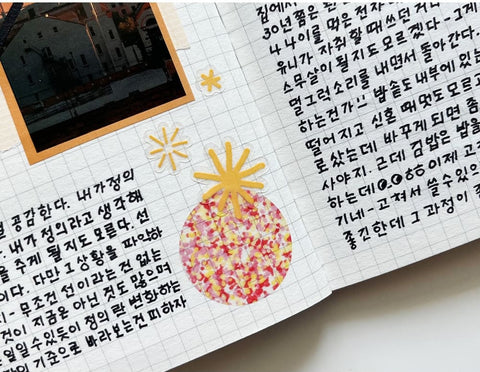 공감한다. 내가 정의
. 내가 정의라고 생각해
을 주게 될 지도 모른다. 선
이다. 다만 그 상황을 파악하
- 무조건 선이라는 건 없는
것이 지금은 아닌 것도 많으며
일 수 있듯이 정의란 변화하는
기준으로 바라보는건 피하자
집에서
30년쯤은 된
4-4이를 먹은 전자
유니가 자취할 때 쓰던 거니
스무살이 될 지도 모르겠다-그게
덜그럭소리를 내면서 돌아간다.
하는건가 밥솥도 내부에 있는
떨어지고 신호 때멋도 모르고
로 샀는데 바꾸게 되면 좀
사야지. 근데 김밥은 밥을
하는데 이제 고
기네- 고쳐서 쓸 수 있으
좋긴한데 그 과정이